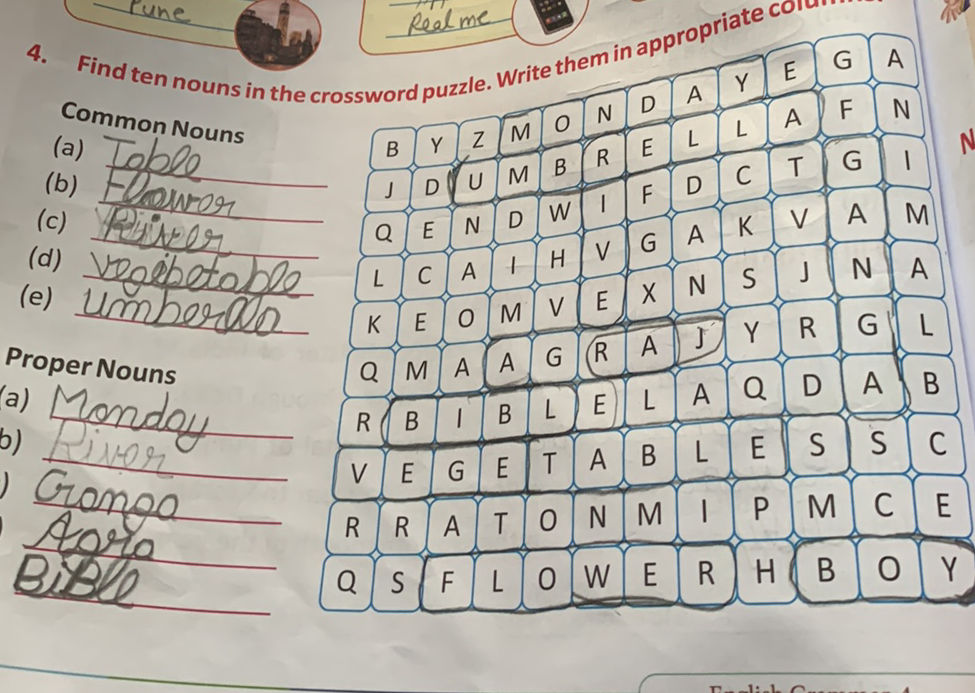 Pune
Realme
4. Find ten nouns in the crossword puzzle. Write them in appropriate
Common Nouns
(a) Table
(b) Flowror
(c) River
(d) Vegebetable
(e) Umberlla
Proper Nouns
(a) Monday
b) River
) Gonga
Agra
BiBle
B Y Z M O N D A Y E G A
J D U M B R E L L A F N
Q E N D W I F D C T G I
L C A I H V G A K V A M
K E O M V E X N S J N A
Q M A A G R A J Y R G L
R B I B L E L A Q D A B
V E G E T A B L E S S C
R R A T O N M I P M C E
Q S F L O W E R H B O Y